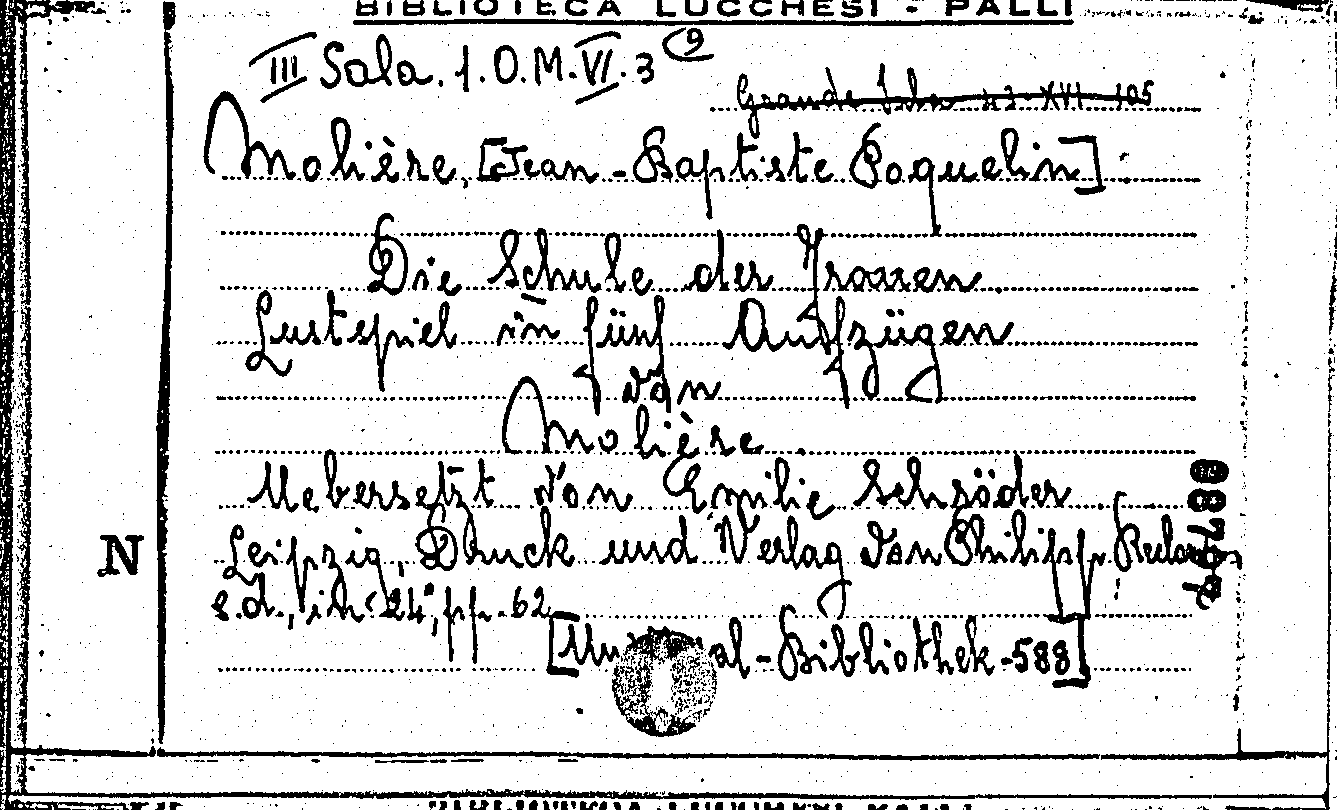 BIBLIOTECA LUCCHESI - PALLI
III Sala. 1. O. M. VI. 3 (9)
Grande Sala 43-XVI-105
Molière, [Jean-Baptiste Poquelin]:
Die Schule der Frauen.
Lustspiel in fünf Aufzügen
von
Molière.
Uebersetzt von Emilie Schröder
Leipzig, Druck und Verlag von Philipp Reclam
N
s.d., in 24°, pp. 62
-Bibliothek-588]
BIBLIOTECA LUCCHESI PALLI